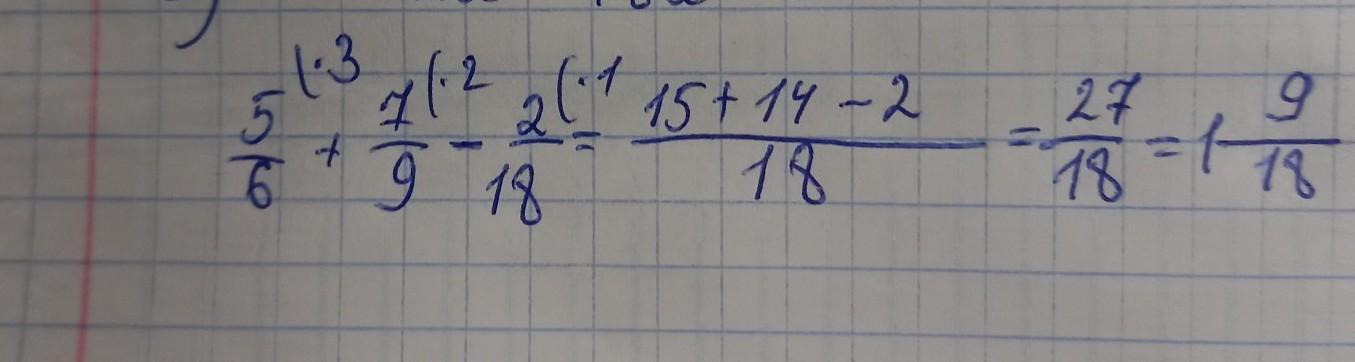 5/6 (·3 + 7/9 (·2 - 2/18 (·1 = (15 + 14 - 2)/18 = 27/18 = 1 9/18